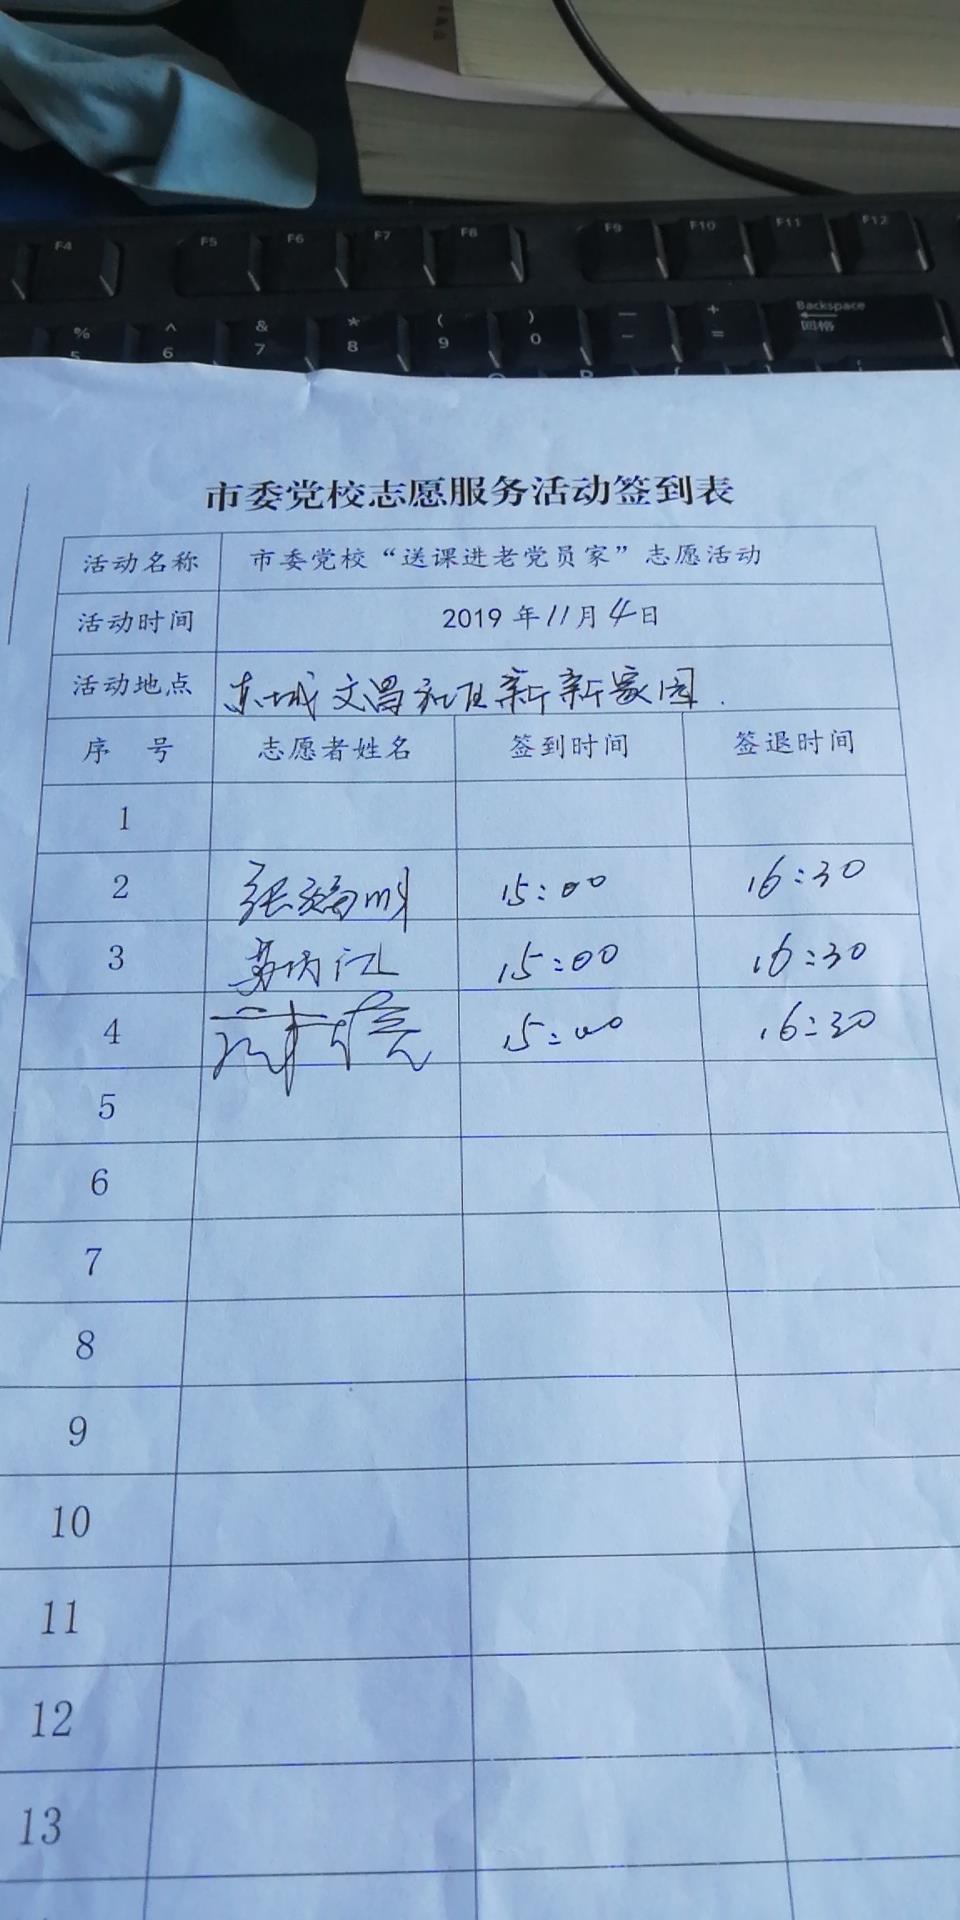 F4 F5 F6 F7 F8 F9 F10 F11 F12
% ^ & * ( ) — + Backspace
5 6 7 8 9 0 - = 回格
市委党校志愿服务活动签到表
活动名称 市委党校“送课进老党员家”志愿活动
活动时间 2019年11月4日
活动地点 东城文昌社区新新家园.
序 号 志愿者姓名 签到时间 签退时间
1
2 15:00 16:30
3 15:00 16:30
4 15:00 16:30
5
6
7
8
9
10
11
12
13